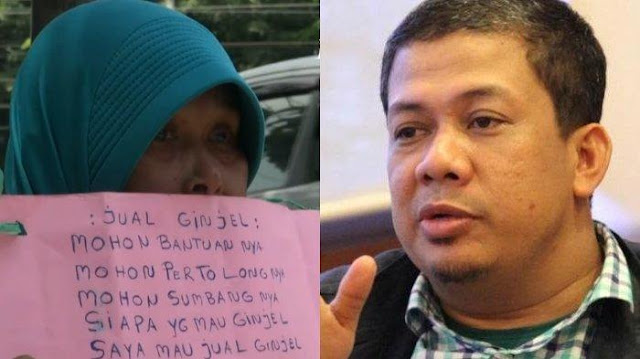 : JUAL GINJEL :
MOHON BANTUAN NYA
MOHON PERTOLONGNYA
MOHON SUMBANGNYA
SIAPA YG MAU GINJEL
SAYA MAU JUAL GINJEL